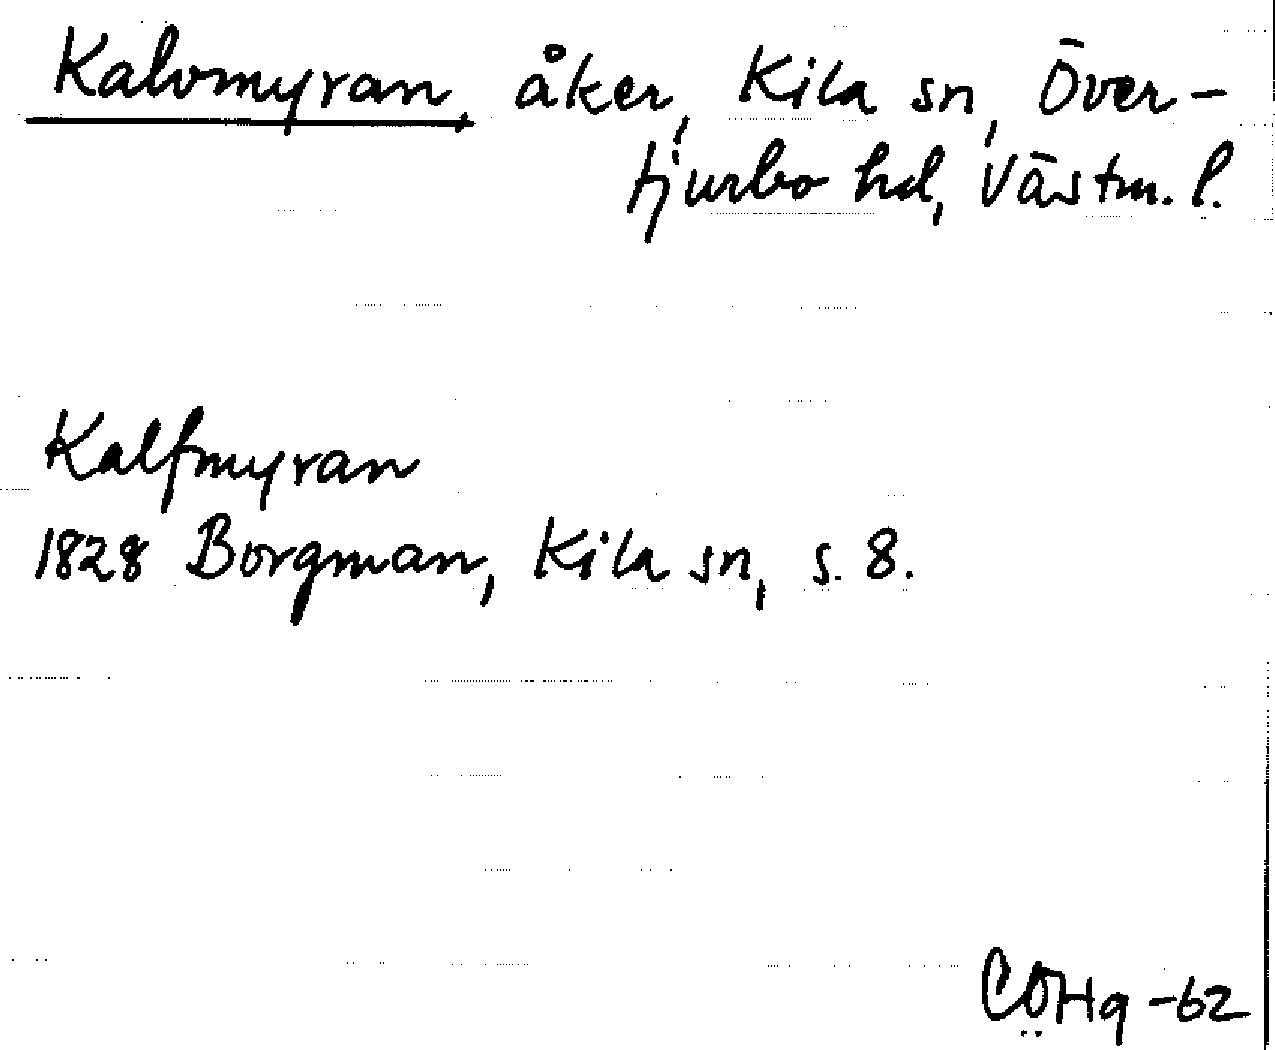 Kalvmyran, åker, Kila sn, Över-
tjurbo hd, Västm. l.
Kalfmyran
1828 Borgman, Kila sn, s. 8.
CÖHg -62